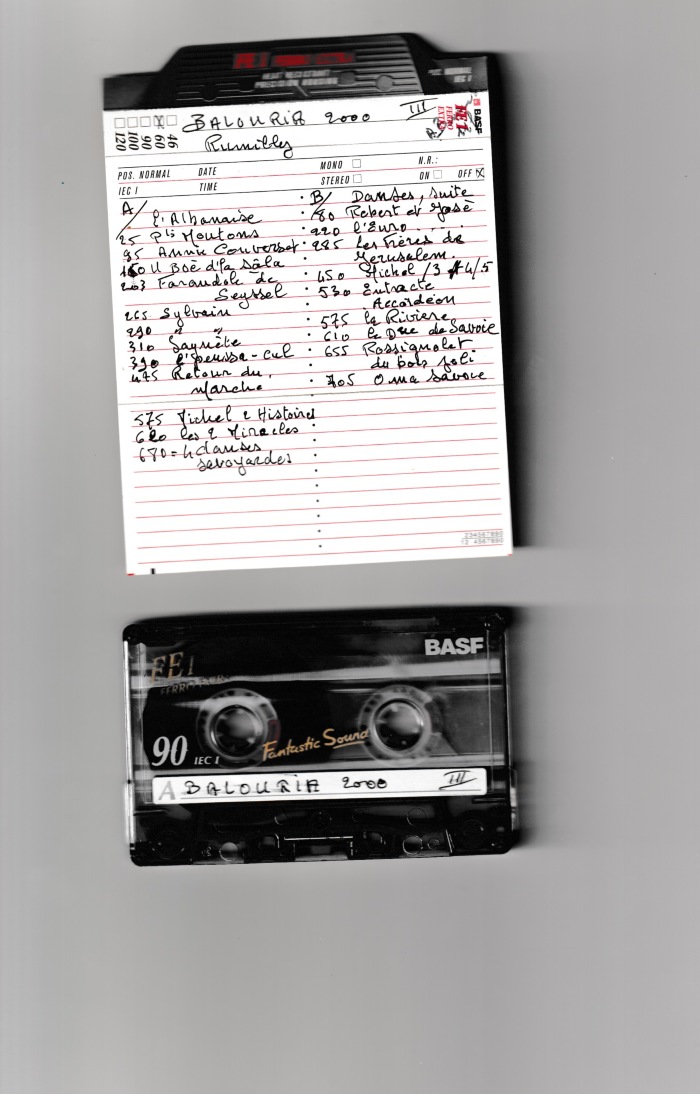 FE I
BALOURIA 2000 III
Rumilly
46
60
90
100
120
FE I
FERRO
EXTRA
BASF
POS. NORMAL
IEC I
DATE
TIME
MONO
STEREO
N.R.:
ON
OFF
A/
l'Albanaise
25 Pts Moutons
95 Annie Converset
160 U Boé d'la Sâla
203 Farandole de
Seyssel
265 Sylvain
290 " "
310 Saynète
390 l'pousse-cul
475 Retour du
marche
575 Michel 2 Histoires
620 les 2 Miracles
680 = 4 danses
savoyardes
B/ Danses, suite
180 Robert et José
220 l'Euro ....
285 Les Frères de
Jerusalem
450 Michel /3 4/5
530 Entracte
Accordéon
575 la Rivière
610 le Duc de Savoie
655 Rossignolet
du bois joli
705 O ma Savoie
BASF
FE I
FERRO EXTRA
90 IEC I
Fantastic Sound
A BALOURIA 2000 III